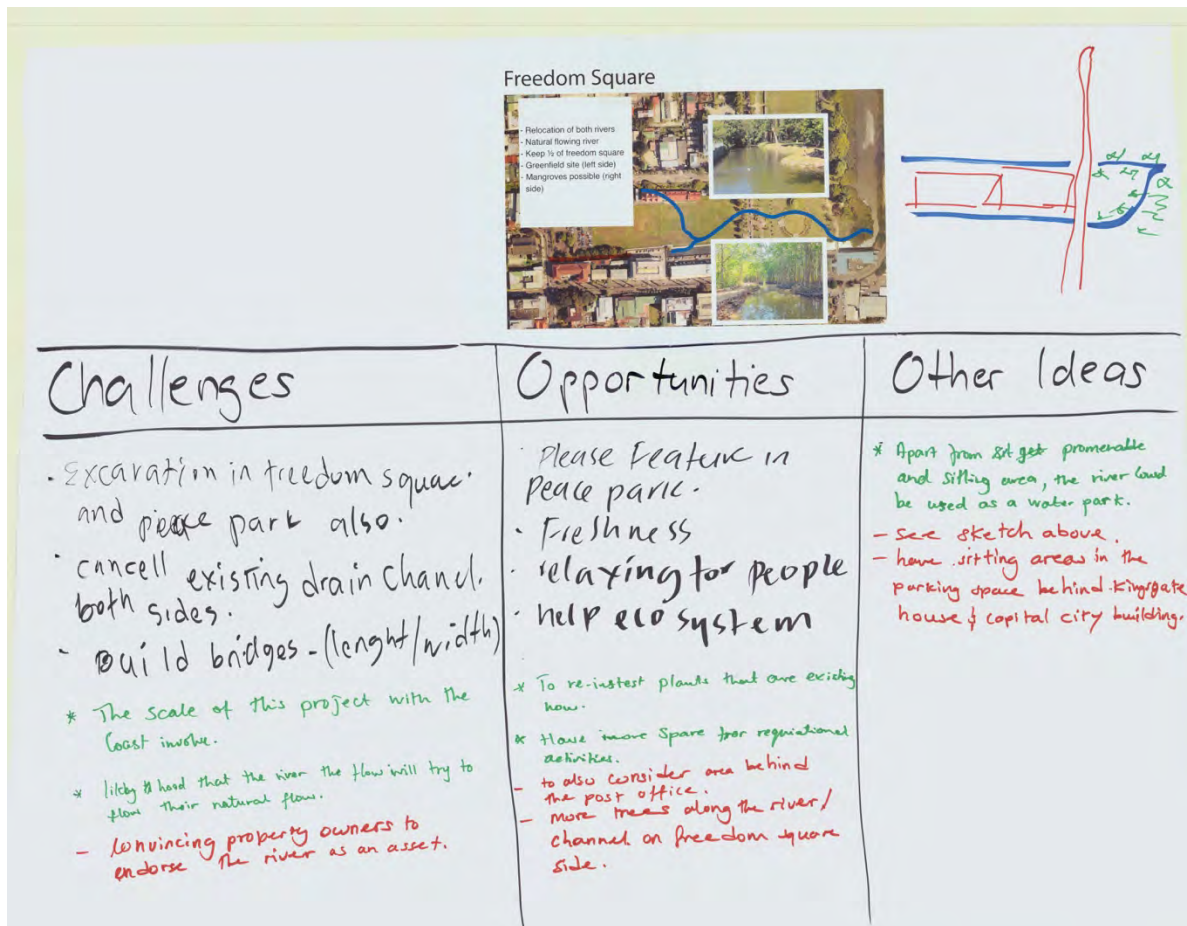 Freedom Square
- Relocation of both rivers
- Natural flowing river
- Keep ½ of freedom square
- Greenfield site (left side)
- Mangroves possible (right
side)
Challenges
· Excavation in freedom square
and peace park also.
· cancell existing drain chanel.
both sides.
· Build bridges - (lenght/width)
* The scale of this project with the
Coast involve.
* hood that the river the flow will try to
flow their natural flow.
- Convincing property owners to
endorse the river as an asset.
Opportunities
· Please Feature in
peace park.
· Freshness
· relaxing for people
· help eco system
* To plants that are existing
now.
* Have more Space for
activities.
- to also consider area behind
the post office.
- more trees along the river/
channel on freedom square
side.
Other Ideas
* Apart from get promenable
and sitting area, the river could
be used as a water park.
- see sketch above.
- have sitting areas in the
parking space behind Kingsgate
house & capital city building.